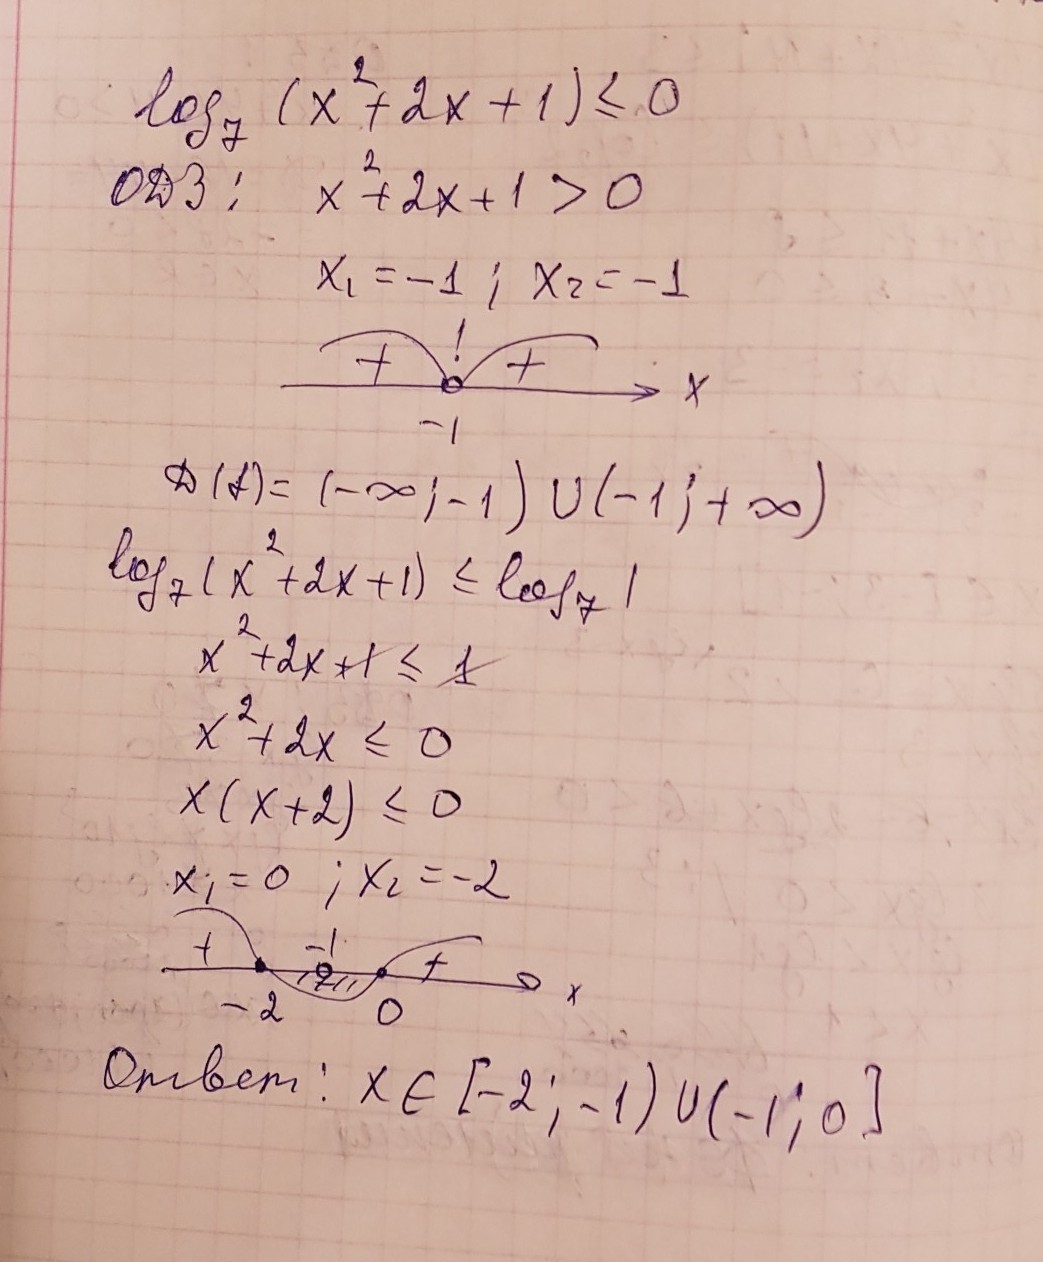 log₇ (x² + 2x + 1) ≤ 0
ОДЗ: x² + 2x + 1 > 0
x₁ = -1 ; x₂ = -1
+ ! + x
-1
D(f) = (-∞; -1) ∪ (-1; +∞)
log₇ (x² + 2x + 1) ≤ log₇ 1
x² + 2x + 1 ≤ 1
x² + 2x ≤ 0
x(x + 2) ≤ 0
x₁ = 0 ; x₂ = -2
+ -1 + x
-2 0
Ответ: x ∈ [-2; -1) ∪ (-1; 0]